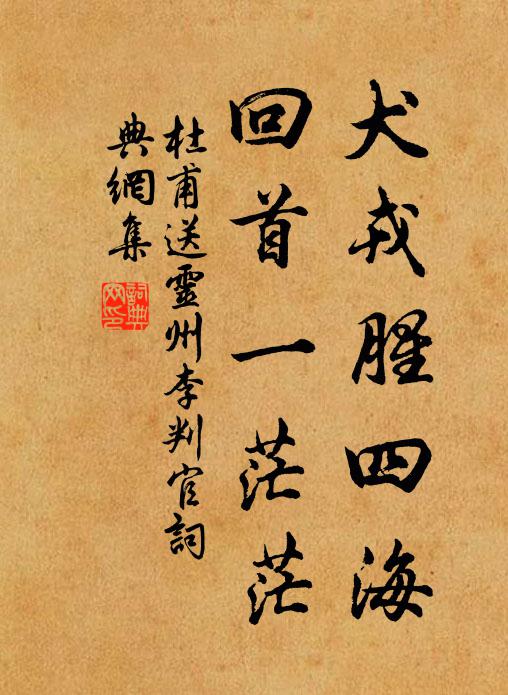 犬戎腥四海
回首一茫茫
杜甫送靈州李判官詞
典網集
詞典網印